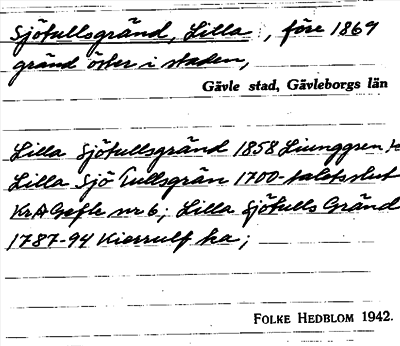 Sjötullsgränd, Lilla, före 1869
gränd öster i staden,
Gävle stad, Gävleborgs län
Lilla Sjötullsgränd 1858 Liunggren
Lilla Sjö Tullsgrän 1700-talets slut
KrA Gefle nr 6; Lilla Sjötulls Gränd
1787-94 Kierrulf ka;
FOLKE HEDBLOM 1942.